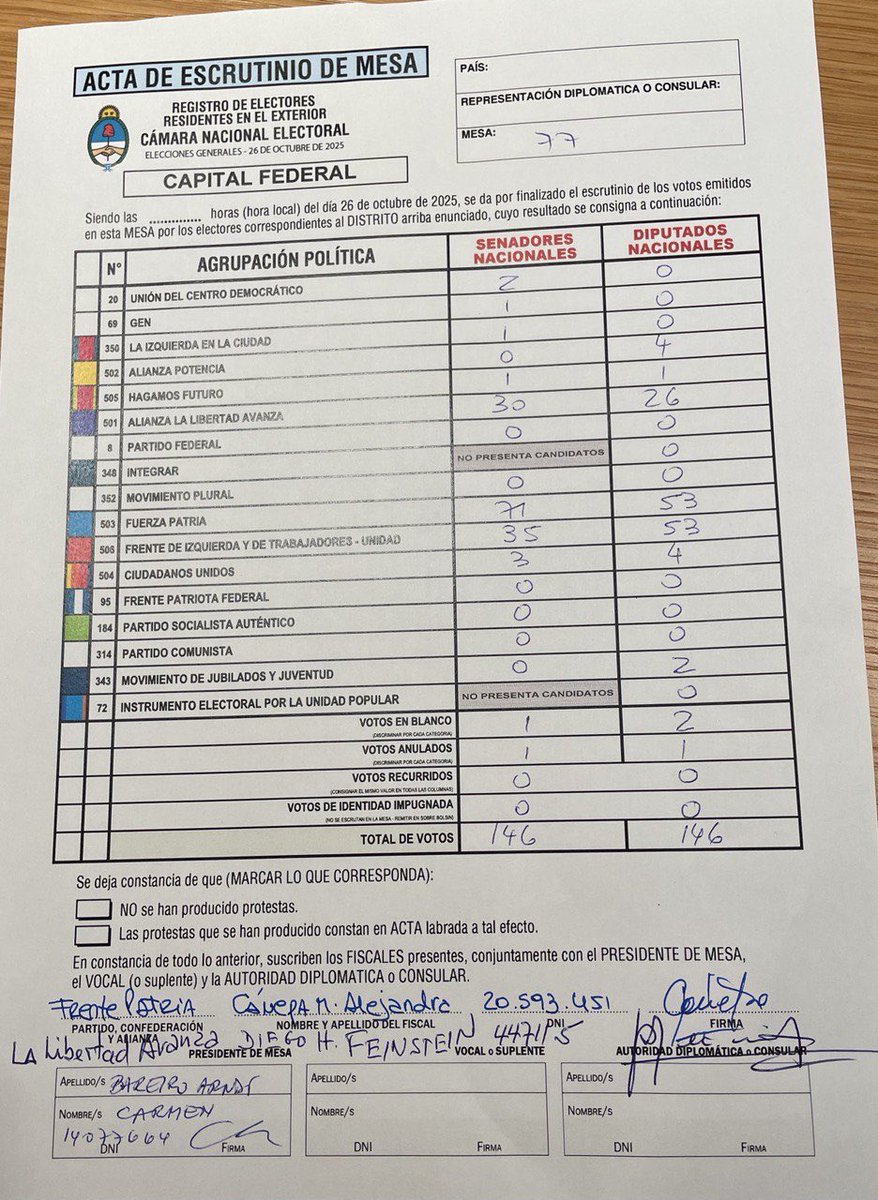 ACTA DE ESCRUTINIO DE MESA
REGISTRO DE ELECTORES
RESIDENTES EN EL EXTERIOR
CÁMARA NACIONAL ELECTORAL
ELECCIONES GENERALES - 26 DE OCTUBRE DE 2025
CAPITAL FEDERAL
PAÍS:
REPRESENTACIÓN DIPLOMATICA O CONSULAR:
MESA: 77
Siendo las .............. horas (hora local) del día 26 de octubre de 2025, se da por finalizado el escrutinio de los votos emitidos
en esta MESA por los electores correspondientes al DISTRITO arriba enunciado, cuyo resultado se consigna a continuación:
N° AGRUPACIÓN POLÍTICA SENADORES NACIONALES DIPUTADOS NACIONALES
20 UNIÓN DEL CENTRO DEMOCRÁTICO 2 0
69 GEN 1 0
350 LA IZQUIERDA EN LA CIUDAD 1 0
502 ALIANZA POTENCIA 0 4
505 HAGAMOS FUTURO 1 1
501 ALIANZA LA LIBERTAD AVANZA 30 26
8 PARTIDO FEDERAL 0 0
348 INTEGRAR NO PRESENTA CANDIDATOS 0
352 MOVIMIENTO PLURAL 0 0
503 FUERZA PATRIA 71 53
506 FRENTE DE IZQUIERDA Y DE TRABAJADORES - UNIDAD 35 53
504 CIUDADANOS UNIDOS 3 4
95 FRENTE PATRIOTA FEDERAL 0 0
184 PARTIDO SOCIALISTA AUTÉNTICO 0 0
314 PARTIDO COMUNISTA 0 0
343 MOVIMIENTO DE JUBILADOS Y JUVENTUD 0 2
72 INSTRUMENTO ELECTORAL POR LA UNIDAD POPULAR NO PRESENTA CANDIDATOS 0
VOTOS EN BLANCO 1 2
(DISCRIMINAR POR CADA CATEGORIA)
VOTOS ANULADOS 1 1
(DISCRIMINAR POR CADA CATEGORIA)
VOTOS RECURRIDOS 0 0
(CONSIGNAR EL MISMO VALOR EN TODAS LAS COLUMNAS)
VOTOS DE IDENTIDAD IMPUGNADA 0 0
(NO SE ESCRUTAN EN LA MESA - REMITIR EN SOBRE BOLSIN)
TOTAL DE VOTOS 146 146
Se deja constancia de que (MARCAR LO QUE CORRESPONDA):
NO se han producido protestas.
Las protestas que se han producido constan en ACTA labrada a tal efecto.
En constancia de todo lo anterior, suscriben los FISCALES presentes, conjuntamente con el PRESIDENTE DE MESA,
el VOCAL (o suplente) y la AUTORIDAD DIPLOMATICA o CONSULAR.
Frente Patria Cánepa M. Alejandra 20.593.451
PARTIDO, CONFEDERACIÓN Y ALIANZA NOMBRE Y APELLIDO DEL FISCAL DNI FIRMA
La Libertad Avanza DIEGO H. FEINSTEIN
PRESIDENTE DE MESA VOCAL o SUPLENTE AUTORIDAD DIPLOMÁTICA o CONSULAR
APELLIDO/S BAREIRO ARNDT APELLIDO/S APELLIDO/S
NOMBRE/S CARMEN NOMBRE/S NOMBRE/S
14077664
DNI FIRMA DNI FIRMA DNI FIRMA